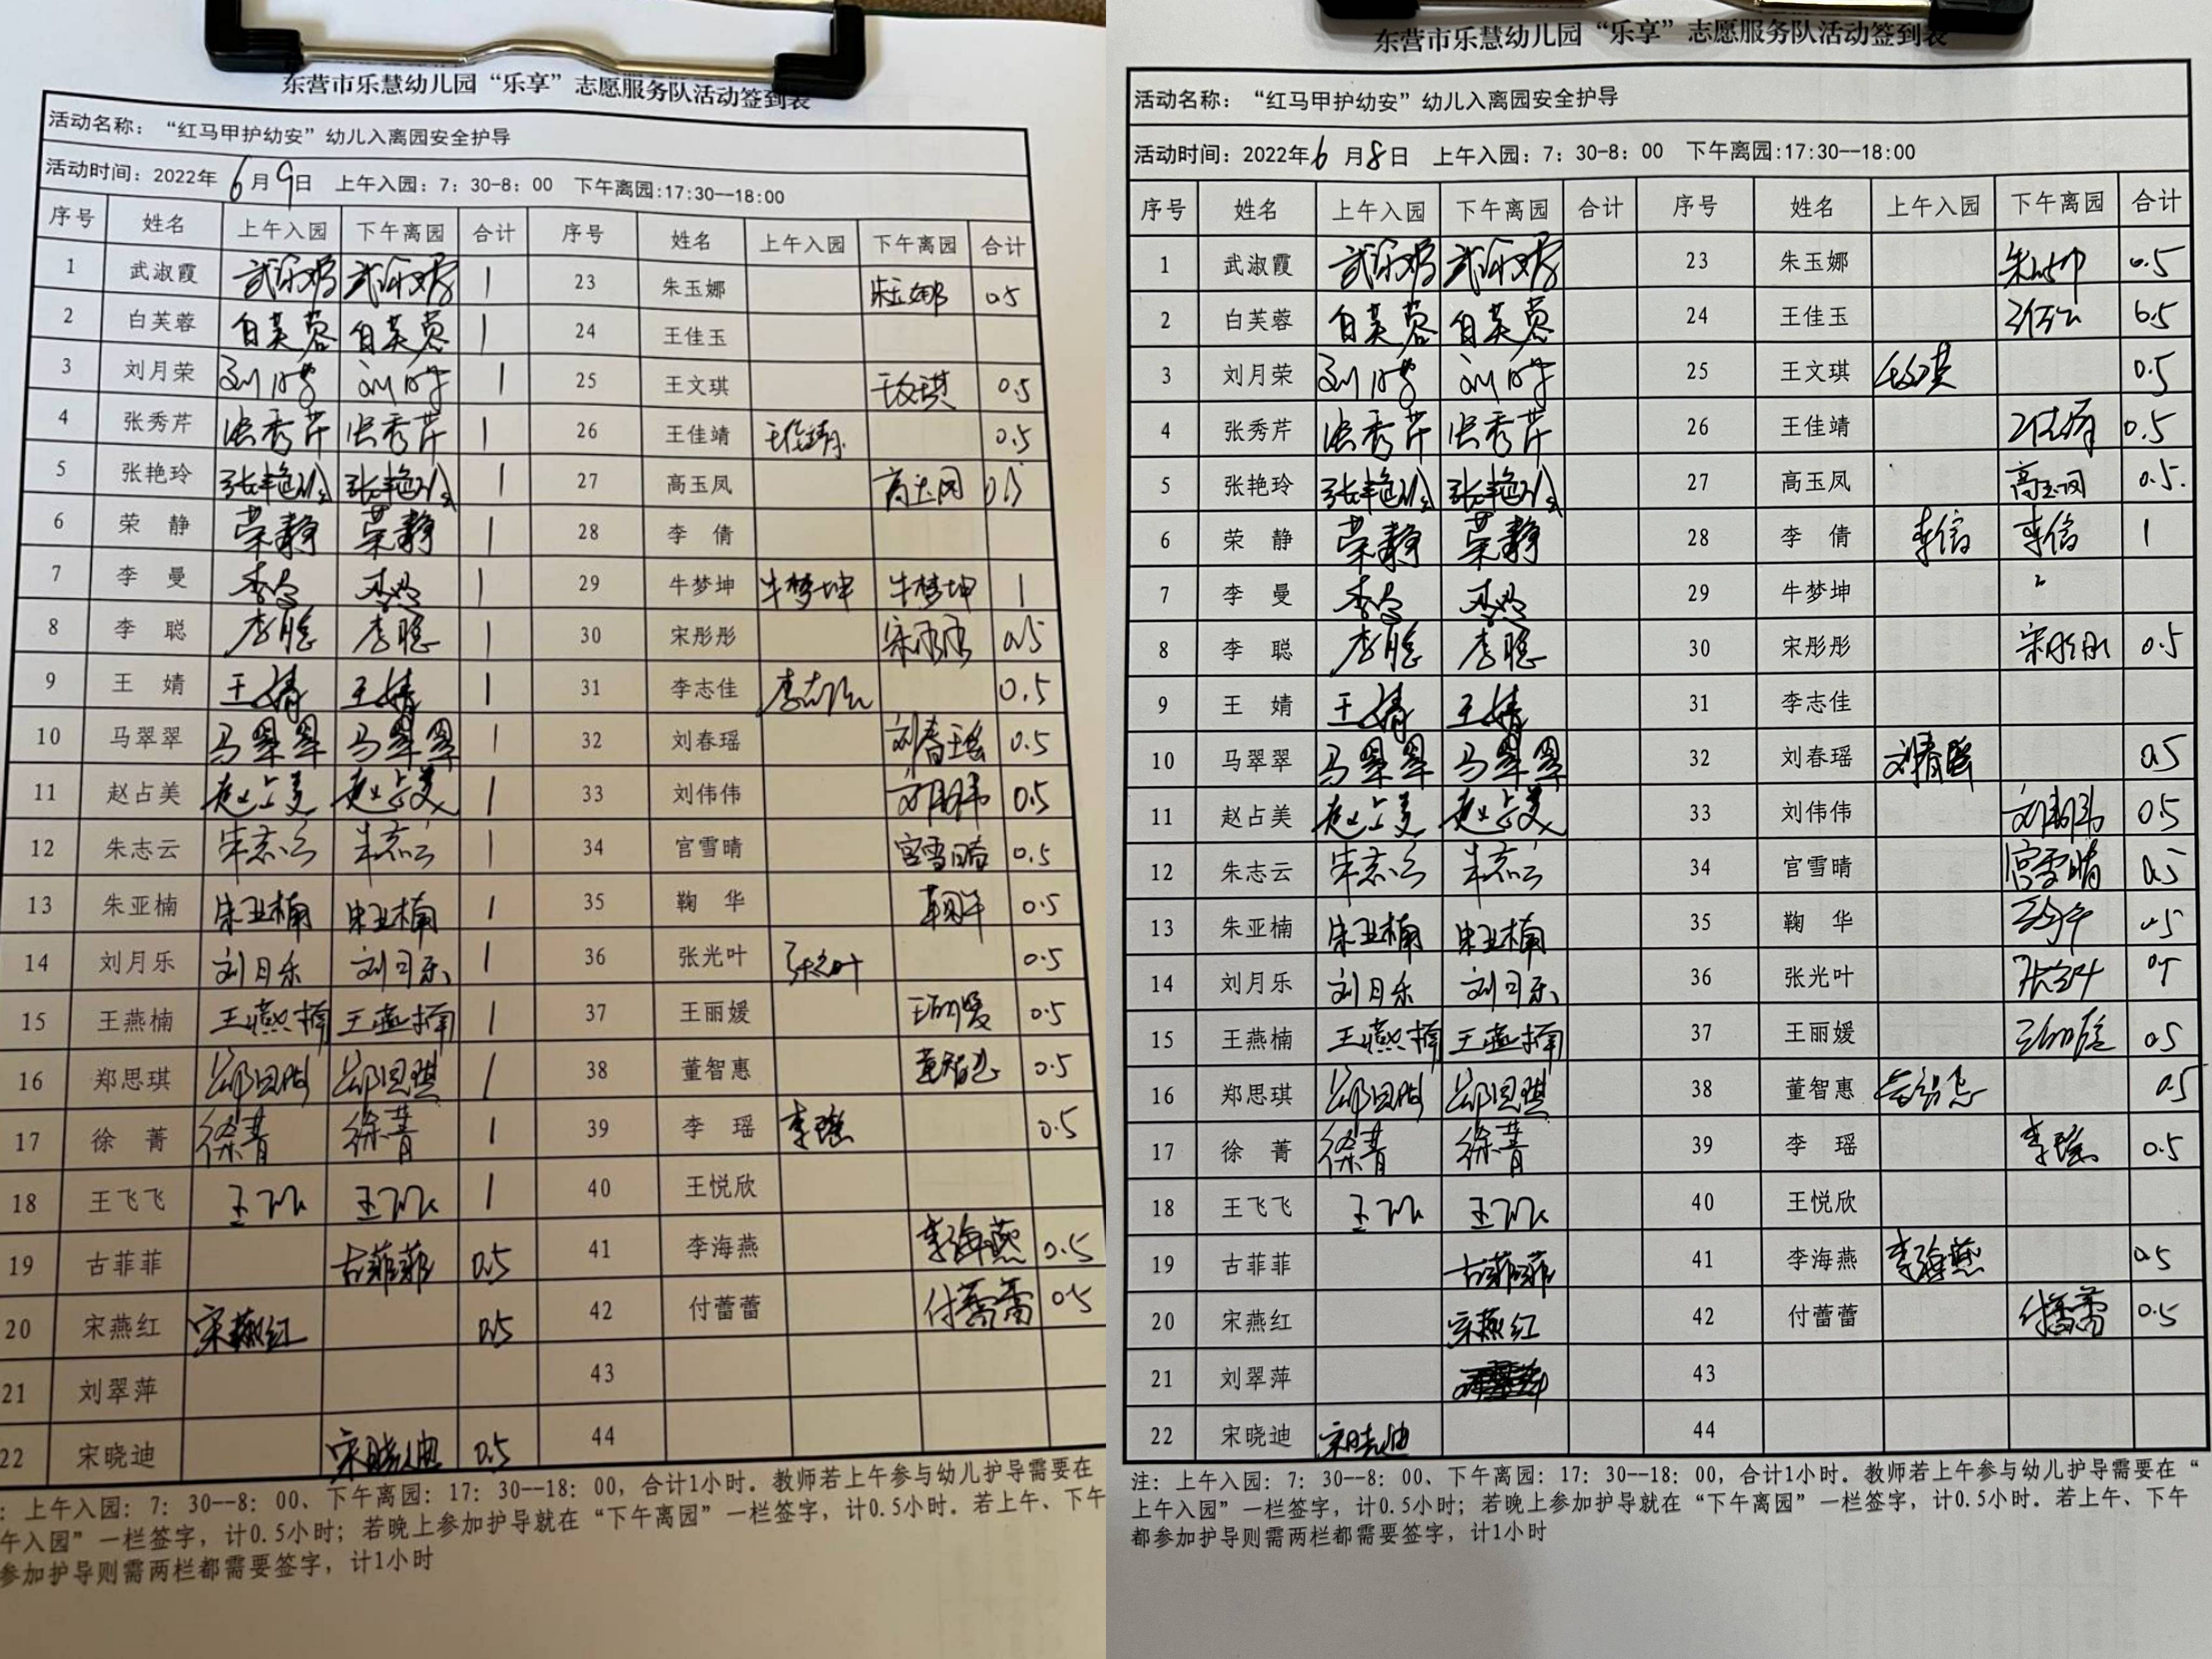 东营市乐慧幼儿园“乐享”志愿服务队活动签到表
活动名称：“红马甲护幼安”幼儿入离园安全护导
活动时间：2022年6月9日 上午入园：7：30-8：00 下午离园:17:30--18:00
序号 姓名 上午入园 下午离园 合计 序号 姓名 上午入园 下午离园 合计
1 武淑霞 1 23 朱玉娜 朱玉娜 0.5
2 白芙蓉 白芙蓉 白芙蓉 1 24 王佳玉
3 刘月荣 1 25 王文琪 王文琪 0.5
4 张秀芹 张秀芹 张秀芹 1 26 王佳靖 王佳靖 0.5
5 张艳玲 张艳玲 张艳玲 1 27 高玉凤 高玉凤 0.5
6 荣静 荣静 荣静 1 28 李倩
7 李曼 李曼 李曼 1 29 牛梦坤 牛梦坤 牛梦坤 1
8 李聪 李聪 李聪 1 30 宋彤彤 宋彤彤 0.5
9 王婧 王婧 王婧 1 31 李志佳 李志佳 0.5
10 马翠翠 马翠翠 马翠翠 1 32 刘春瑶 刘春瑶 0.5
11 赵占美 赵占美 赵占美 1 33 刘伟伟 刘伟伟 0.5
12 朱志云 朱志云 朱志云 1 34 官雪晴 官雪晴 0.5
13 朱亚楠 朱亚楠 朱亚楠 1 35 鞠华 0.5
14 刘月乐 刘月乐 刘月乐 1 36 张光叶 张光叶 0.5
15 王燕楠 王燕楠 王燕楠 1 37 王丽媛 王丽媛 0.5
16 郑思琪 郑思琪 郑思琪 1 38 董智惠 董智惠 0.5
17 徐菁 徐菁 徐菁 1 39 李瑶 李瑶 0.5
18 王飞飞 王飞飞 王飞飞 1 40 王悦欣
19 古菲菲 古菲菲 0.5 41 李海燕 李海燕 0.5
20 宋燕红 宋燕红 0.5 42 付蕾蕾 付蕾蕾 0.5
21 刘翠萍 43
22 宋晓迪 宋晓迪 0.5 44
：上午入园：7：30--8：00、下午离园：17：30--18：00，合计1小时。教师若上午参与幼儿护导需要在
午入园”一栏签字，计0.5小时；若晚上参加护导就在“下午离园”一栏签字，计0.5小时。若上午、下午
参加护导则需两栏都需要签字，计1小时
东营市乐慧幼儿园“乐享”志愿服务队活动签到表
活动名称：“红马甲护幼安”幼儿入离园安全护导
活动时间：2022年6月8日 上午入园：7：30-8：00 下午离园:17:30--18:00
序号 姓名 上午入园 下午离园 合计 序号 姓名 上午入园 下午离园 合计
1 武淑霞 23 朱玉娜 0.5
2 白芙蓉 白芙蓉 白芙蓉 24 王佳玉 0.5
3 刘月荣 25 王文琪 0.5
4 张秀芹 张秀芹 张秀芹 26 王佳靖 0.5
5 张艳玲 张艳玲 张艳玲 27 高玉凤 高玉凤 0.5.
6 荣静 荣静 荣静 28 李倩 李倩 李倩 1
7 李曼 李曼 李曼 29 牛梦坤
8 李聪 李聪 李聪 30 宋彤彤 宋彤彤 0.5
9 王婧 王婧 王婧 31 李志佳
10 马翠翠 马翠翠 马翠翠 32 刘春瑶 刘春瑶 0.5
11 赵占美 赵占美 赵占美 33 刘伟伟 刘伟伟 0.5
12 朱志云 朱志云 朱志云 34 官雪晴 官雪晴 0.5
13 朱亚楠 朱亚楠 朱亚楠 35 鞠华 0.5
14 刘月乐 刘月乐 刘月乐 36 张光叶 张光叶
15 王燕楠 王燕楠 王燕楠 37 王丽媛 0.5
16 郑思琪 郑思琪 郑思琪 38 董智惠 0.5
17 徐菁 徐菁 徐菁 39 李瑶 李瑶 0.5
18 王飞飞 王飞飞 王飞飞 40 王悦欣
19 古菲菲 古菲菲 41 李海燕 李海燕 0.5
20 宋燕红 宋燕红 42 付蕾蕾 付蕾蕾 0.5
21 刘翠萍 43
22 宋晓迪 宋晓迪 44
注：上午入园：7：30--8：00、下午离园：17：30--18：00，合计1小时。教师若上午参与幼儿护导需要在“
上午入园”一栏签字，计0.5小时；若晚上参加护导就在“下午离园”一栏签字，计0.5小时。若上午、下午
都参加护导则需两栏都需要签字，计1小时